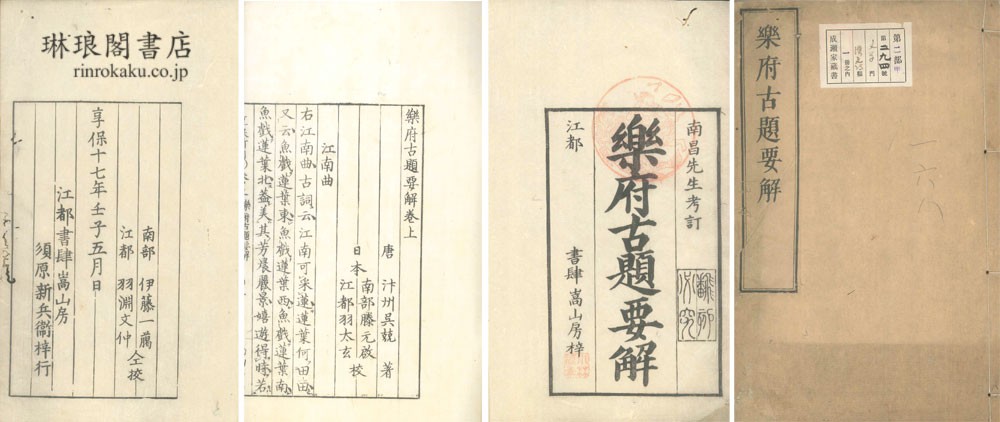 樂府古題要解
第二部
成瀬家蔵書
一六八
南昌先生考訂
樂府古題要解
江都 書肆嵩山房梓
翻刻必究
樂府古題要解卷上
唐 汴州吳兢 著
南部滕元啟
日本 校
江都羽太玄
江南曲
右江南曲古詞云江南可采蓮蓮葉何田田
又云魚戲蓮葉東魚戲蓮葉西魚戲蓮葉南
魚戲蓮葉北蓋美其芳晨麗景嬉遊得時若
琳琅閣書店
rinrokaku.co.jp
享保十七年壬子五月日
南部 伊藤一
仝挍
江都 羽淵文仲
江都書肆嵩山房
須原新兵衞梓行